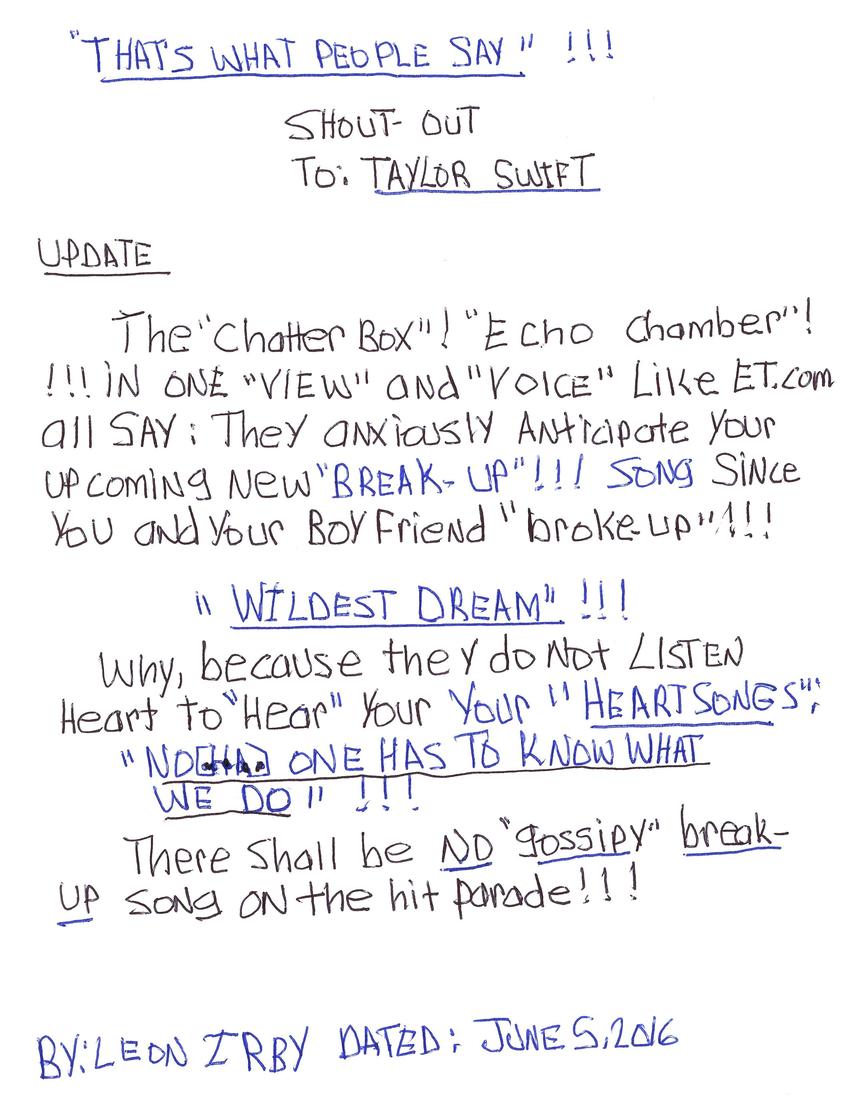 "THAT'S WHAT PEOPLE SAY" !!!
SHOUT-OUT
To: TAYLOR SWIFT
UPDATE
The "Chatter Box"! "Echo Chamber"!
!!! IN ONE "VIEW" and "VOICE" Like ET.com
all SAY: They anxiously Anticipate Your
UPcoming New "BREAK-UP"!!! SONG SiNce
You and Your BoyFriend "broke-up"!!!
"WILDEST DREAM" !!!
Why, because they do Not LISTEN
Heart to "Hear" Your Your "HEARTSONGS";
"NO ONE HAS TO KNOW WHAT
WE DO" !!!
There Shall be NO "gossipy" break-
UP SONG ON the hit parade!!!
BY: LEON IRBY DATED: JUNE 5, 2016